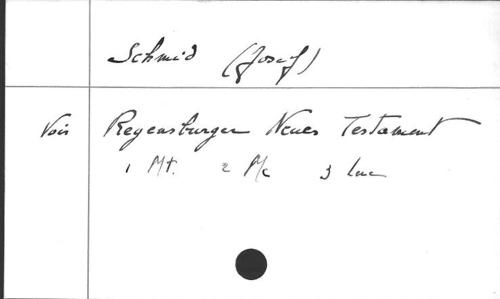 Schmid (Josef)
Voir Regensburger Neues Testament
1 Mt. 2 Mc 3 Luc